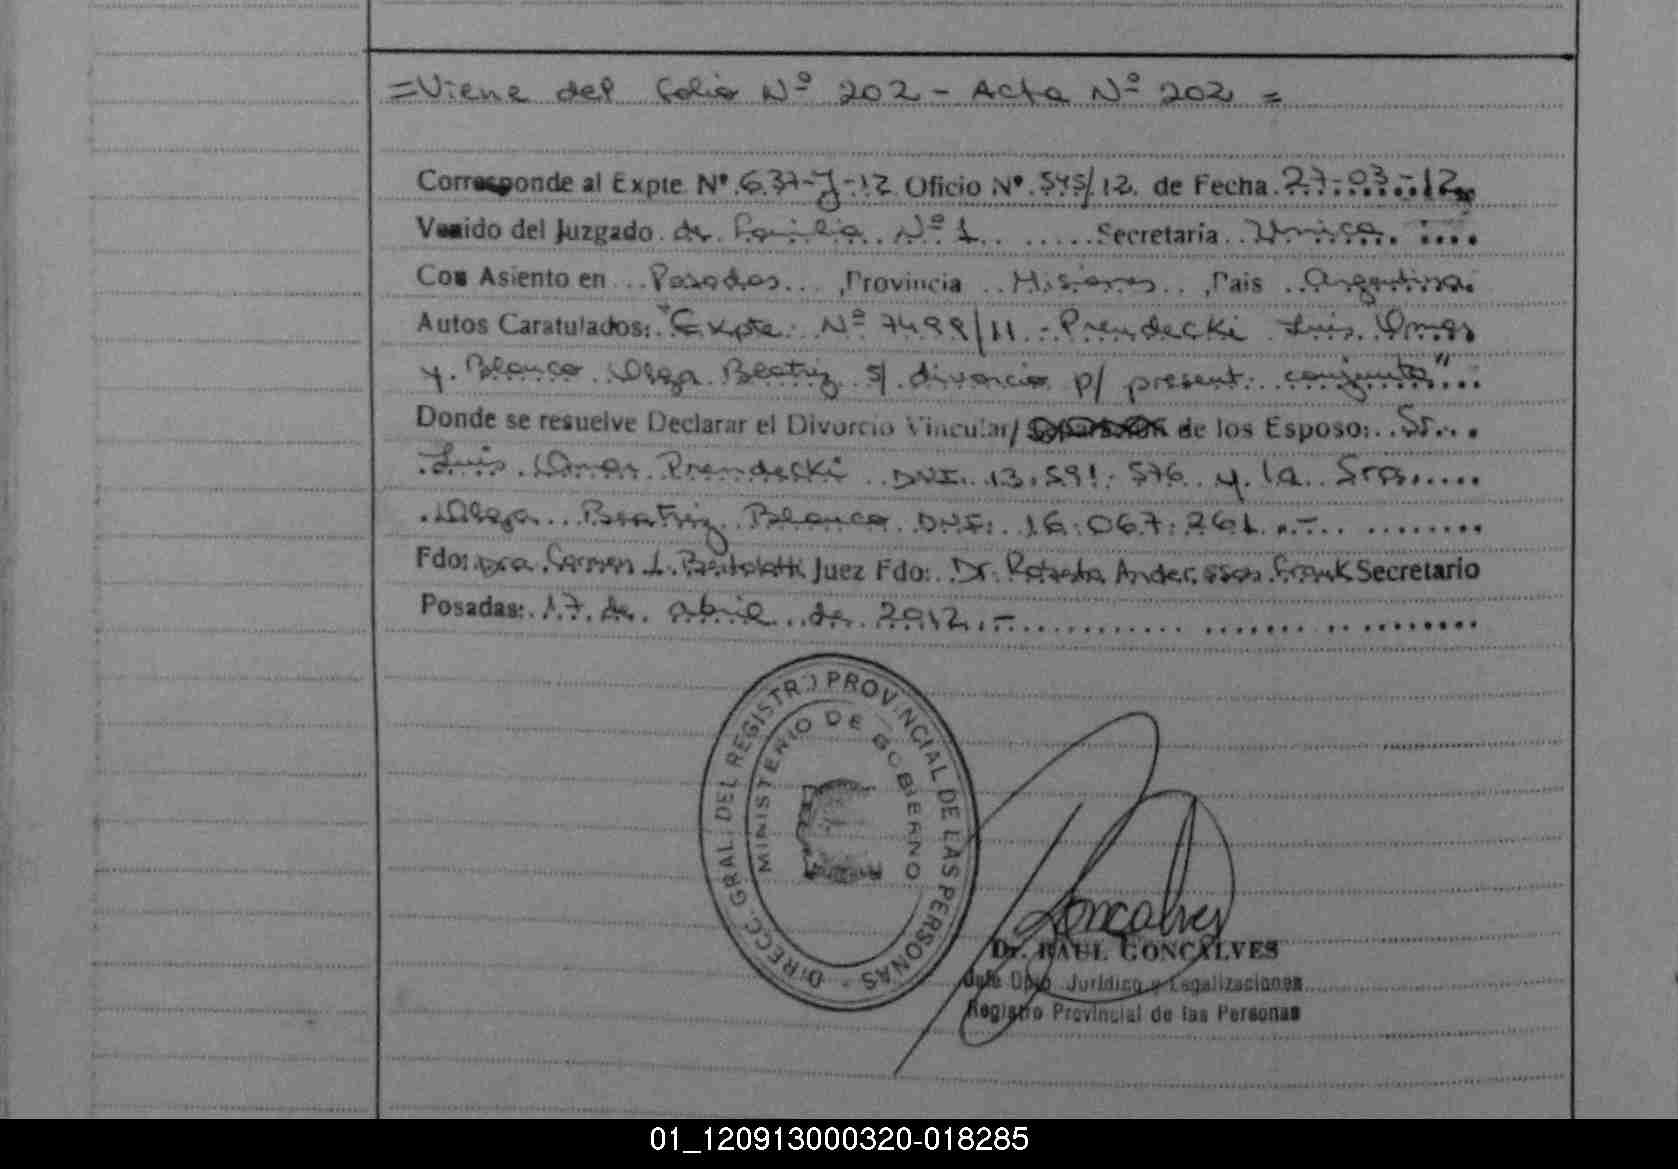 =Viene del folio Nº 202 - Acta Nº 202 =
Corresponde al Expte Nº. 637-J-12 Oficio Nº. 545/12. de Fecha. 27-03-12
Venido del Juzgado. de Familia Nº 1 Secretaria Unica
Con Asiento en Posadas, Provincia Misiones, Pais Argentina
Autos Caratulados: "Expte. Nº 7499/11 - Prendecki Luis Omar
y Blanco Olga Beatriz s/ divorcio p/ present. conjunta"
Donde se resuelve Declarar el Divorcio Vincular/ de los Esposo: Sr.
Luis Omar Prendecki DNI. 13.591.576 y la Sra.
Olga Beatriz Blanco DNI. 16.067.261.-
Fdo: Dra Carmen L. Juez Fdo: Dr. Roberto Andersson Frank Secretario
Posadas: 17 de abril de 2012.-
DIRECC. GRAL. DEL REGISTRO PROVINCIAL DE LAS PERSONAS -
MINISTERIO DE GOBIERNO
Goncalves
Dr. RAUL GONCALVES
Jefe Dpto Jurídico y Legalizaciones
Registro Provincial de las Personas
01_120913000320-018285